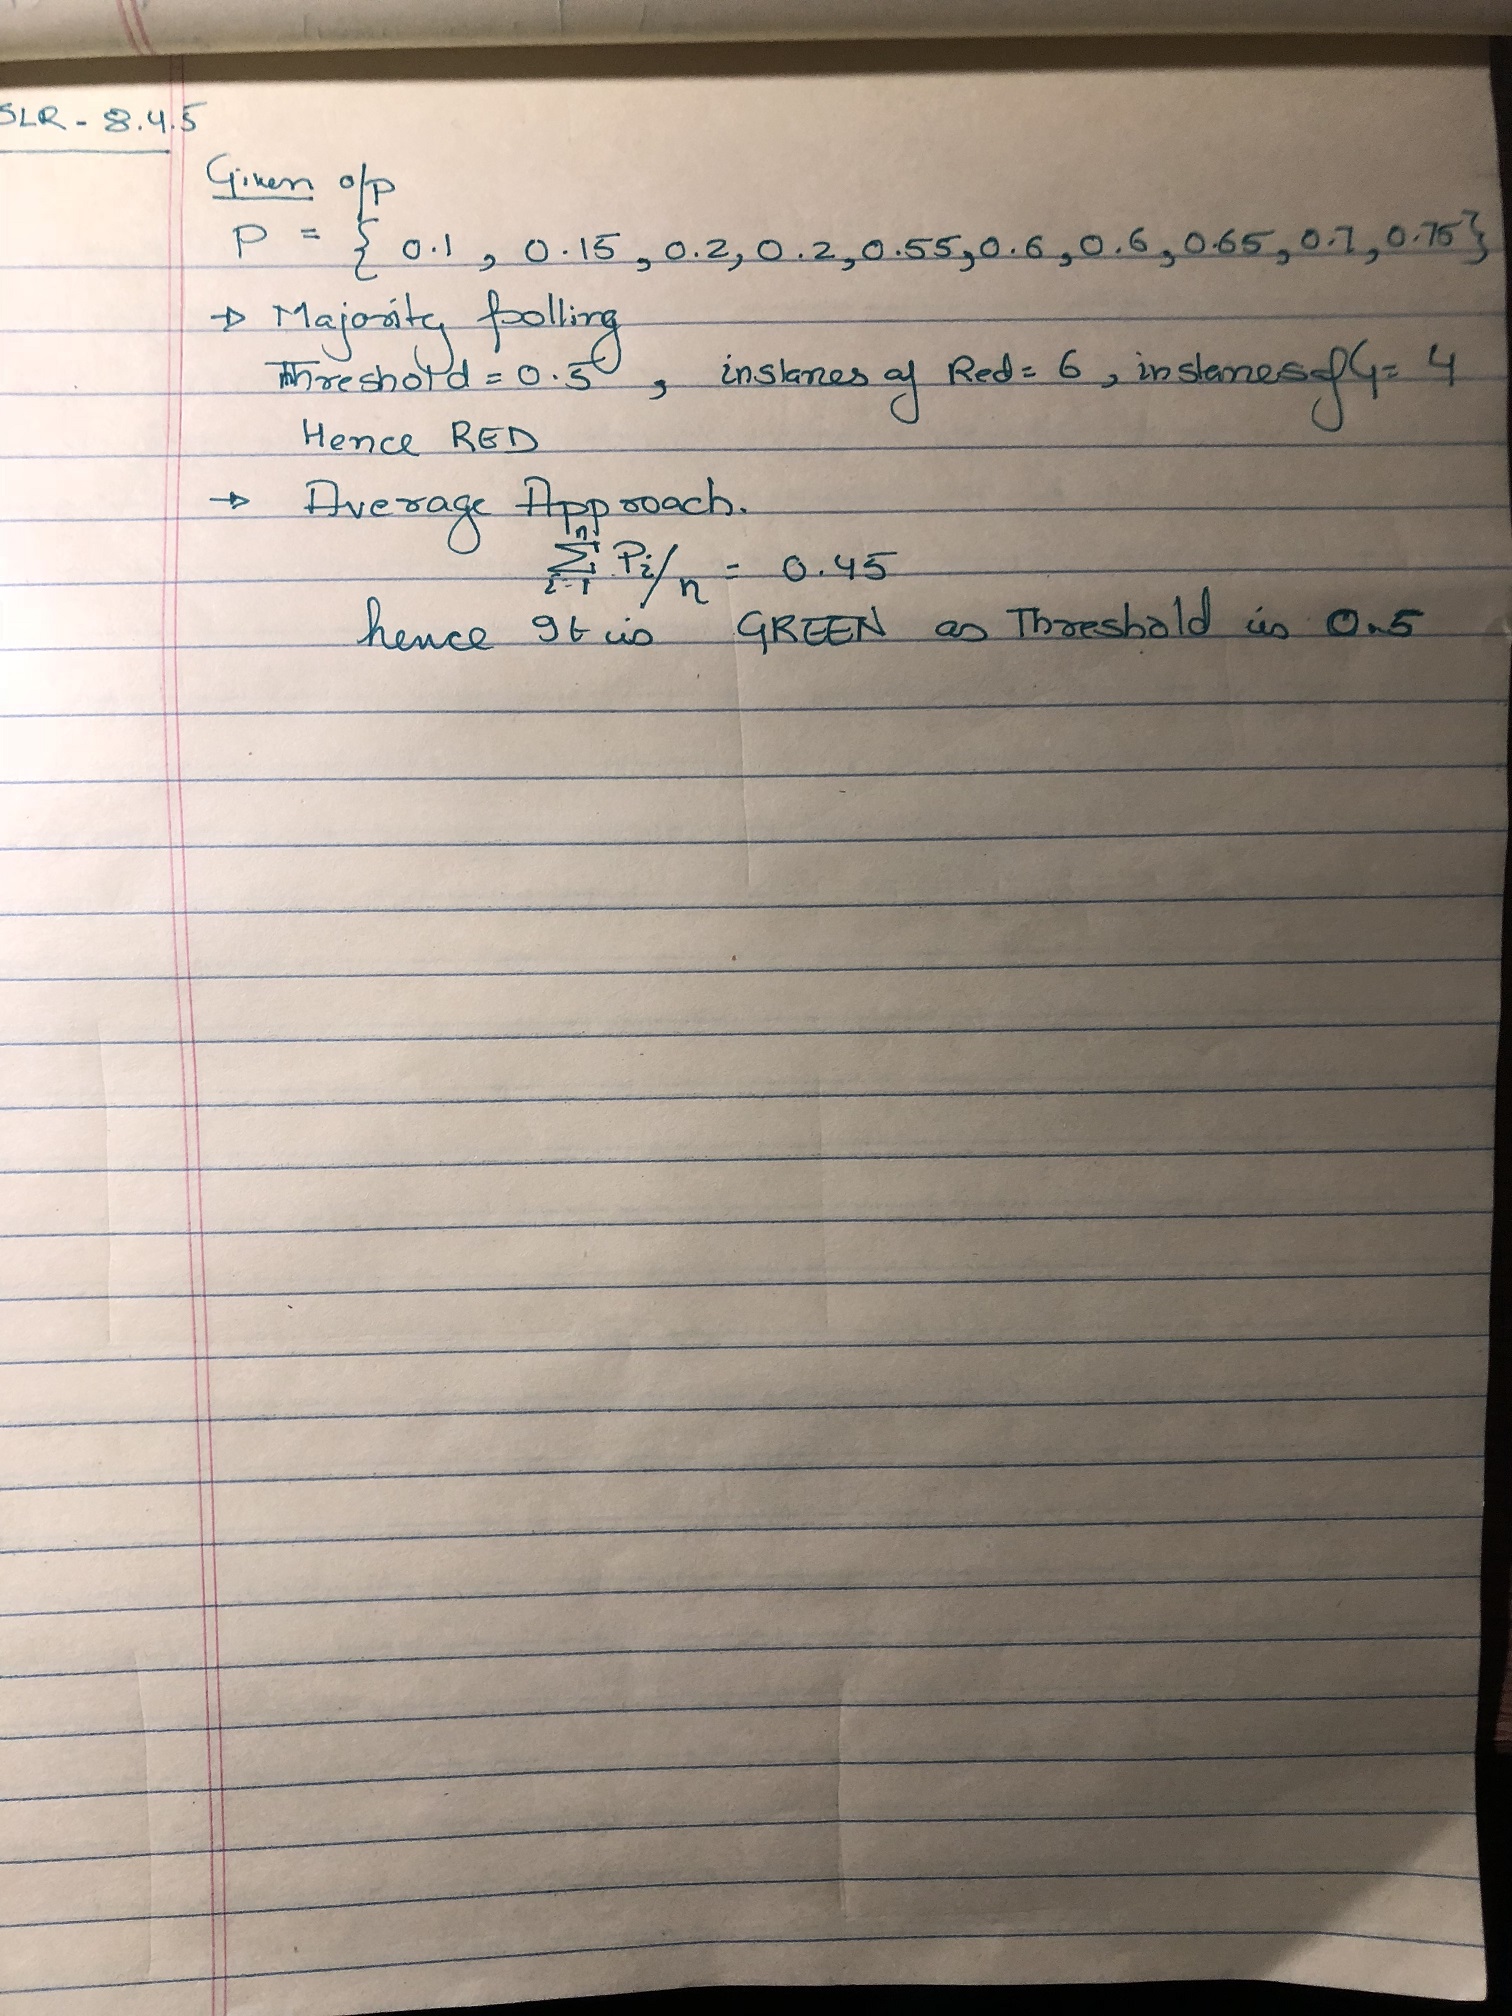 SLR - 8.4.5
Given o/p
P = { 0.1, 0.15, 0.2, 0.2, 0.55, 0.6, 0.6, 0.65, 0.7, 0.75}
→ Majority polling
Threshold = 0.5, instanes of Red = 6, instanes of G = 4
Hence RED
→ Average Approach.
n
∑ Pi/n = 0.45
i=1
hence It is GREEN as Threshold is 0.5